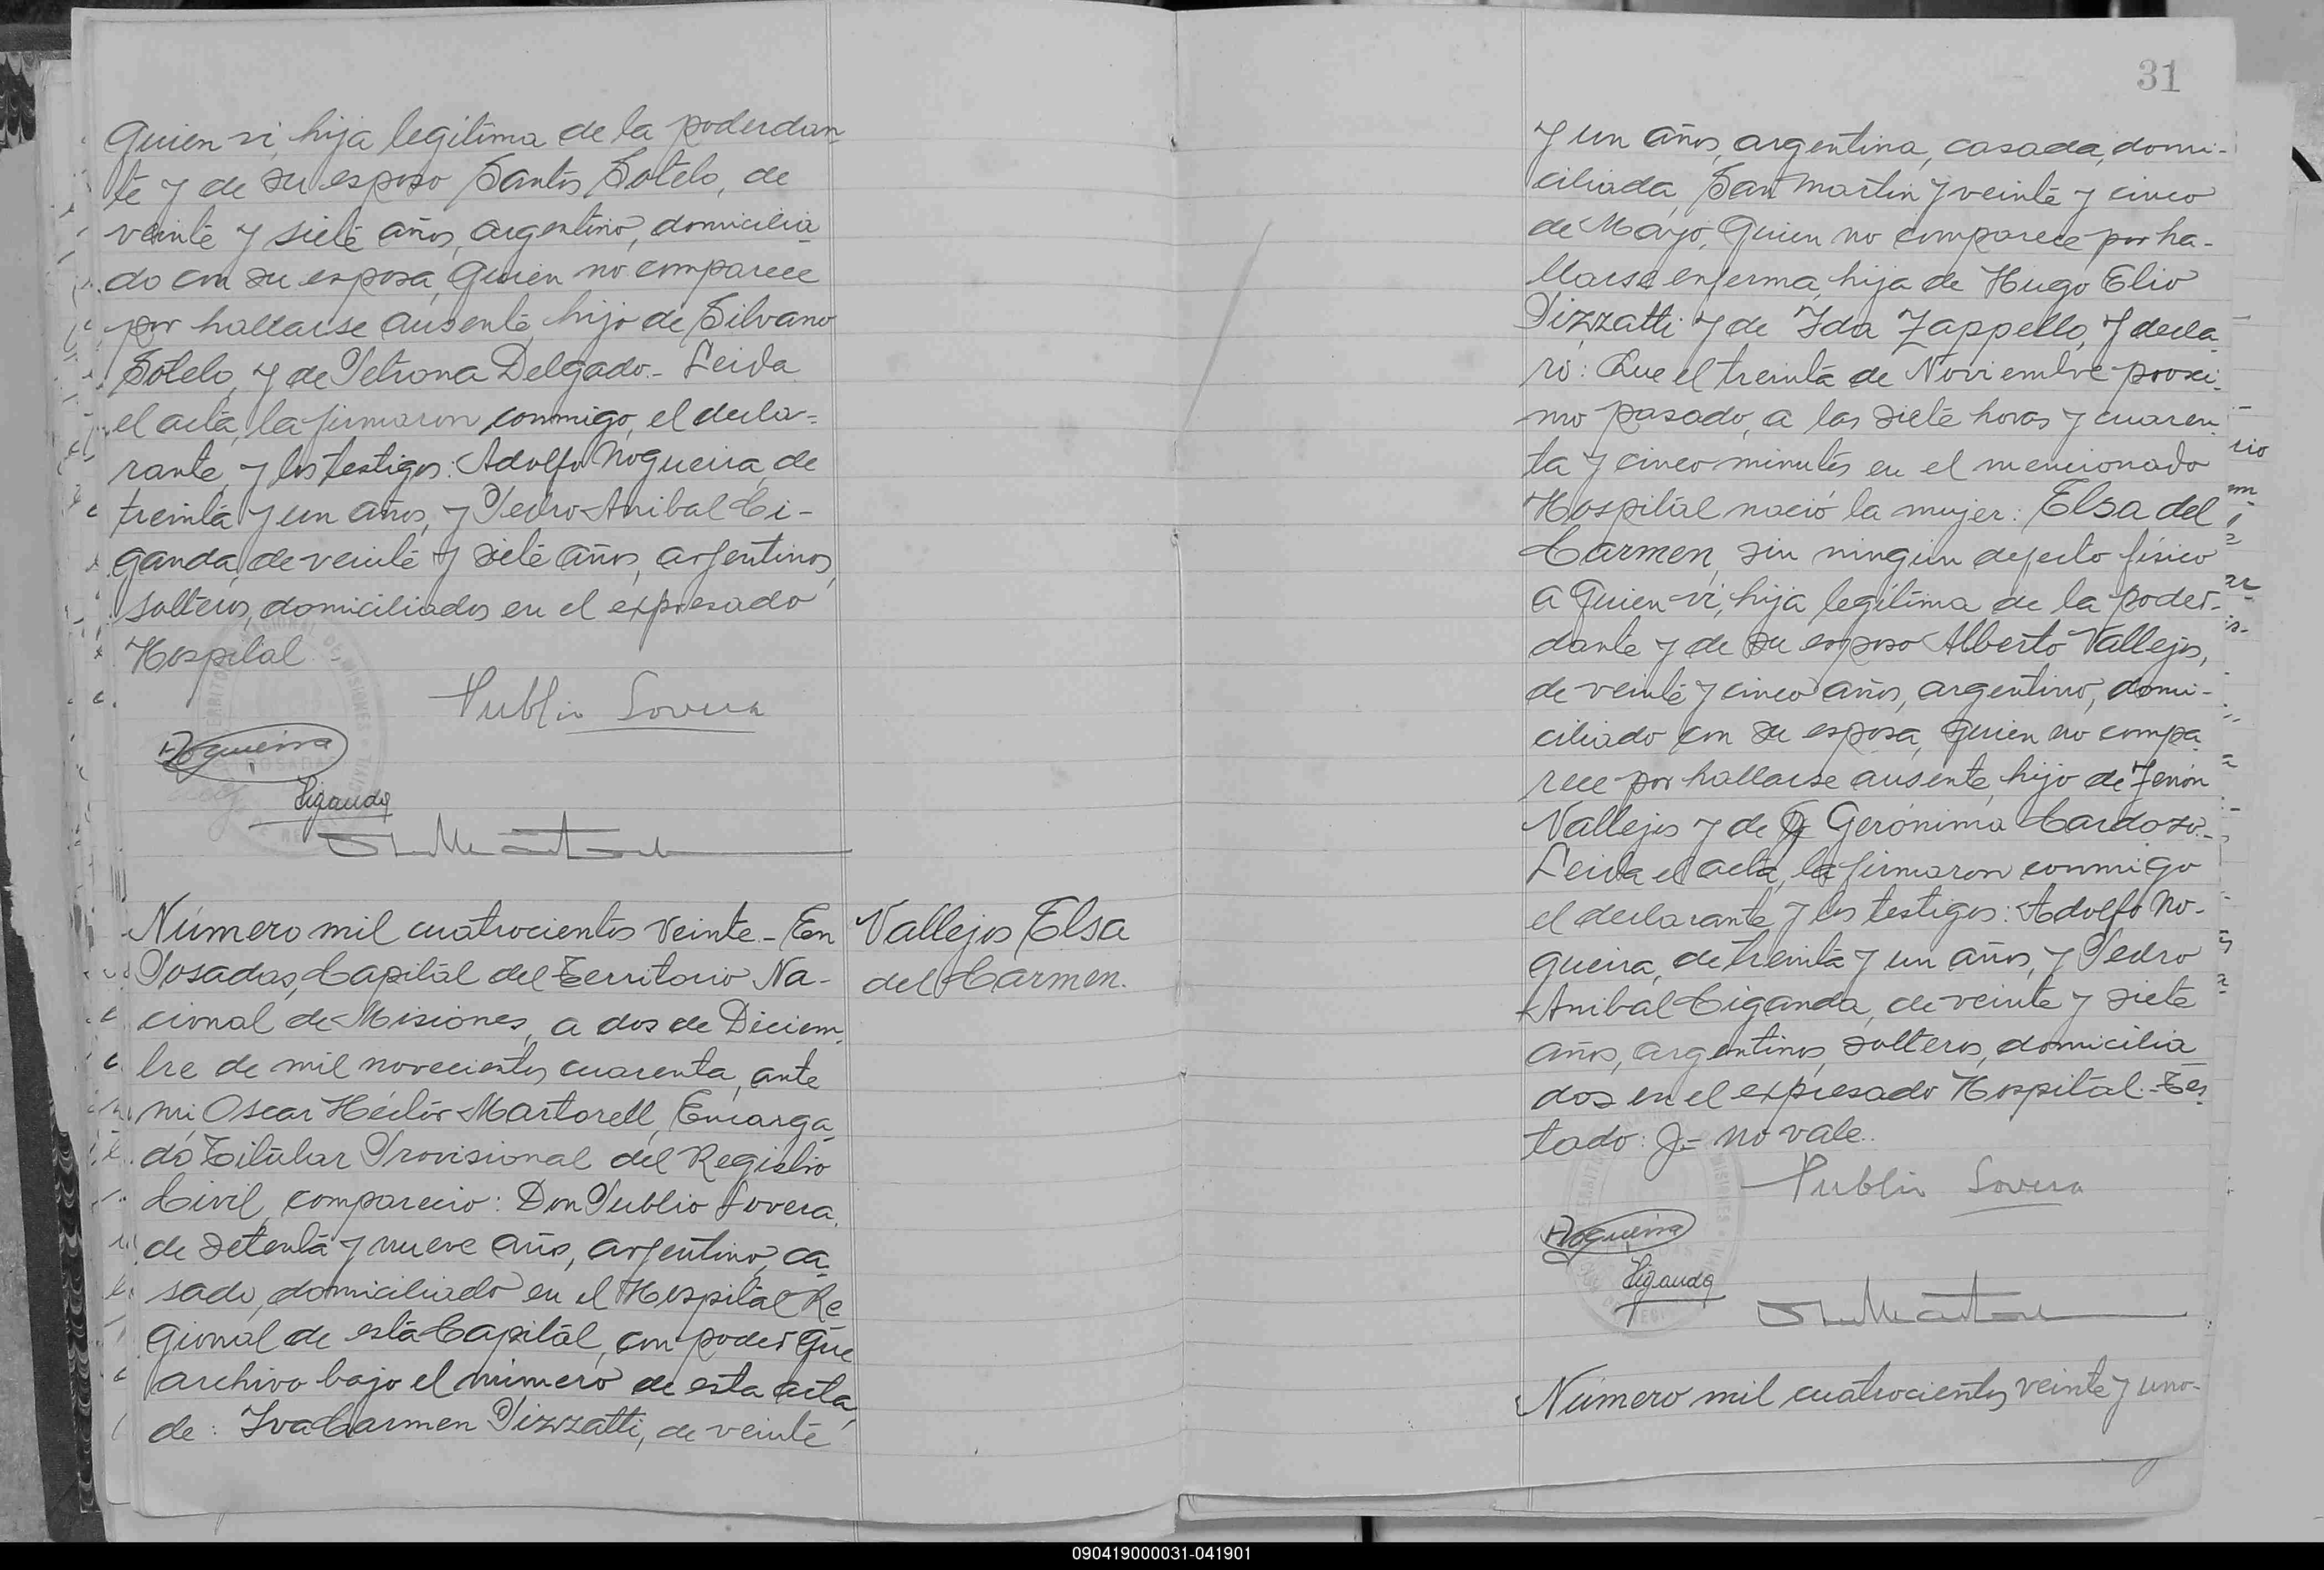 quien vi, hija legítima de la poderdan-
te y de su esposo Santos Sotelo, de
veinte y siete años, argentino, domicilia-
do con su esposa, quien no comparece
por hallarse ausente, hijo de Silvano
Sotelo, y de Petrona Delgado.- Leida
el acta, la firmaron conmigo, el decla-
rante, y los testigos: Adolfo Nogueira, de
treinta y un años, y Pedro Anibal Ci-
ganda, de veinte y siete años, argentinos,
solteros, domiciliados en el expresado
Hospital.-
Publio Lovera
Nogueira
Ciganda
Número mil cuatrocientos veinte.- En
Posadas, Capital del Territorio Na-
cional de Misiones, a dos de Diciem-
bre de mil novecientos cuarenta, ante
mi, Oscar Héctor Martorell, Encarga-
do Titular Provisional del Registro
Civil, compareció: Don Publio Lovera,
de setenta y nueve años, argentino, ca-
sado, domiciliado en el Hospital Re-
gional de esta Capital, con poder que
archivo bajo el número de esta acta,
de: Iva Carmen Pizzatti, de veinte
Vallejos Elsa
del Carmen.
31
y un años, argentina, casada, domi-
ciliada, San Martin y veinte y cinco
de Mayo, quien no comparece por ha-
llarse enferma, hija de Hugo Elio
Pizzatti y de Ida Zappello, y decla-
ró: Que el treinta de Noviembre proxi-
mo pasado, a las siete horas y cuaren-
ta y cinco minutos en el mencionado
Hospital nació la mujer: Elsa del
Carmen, sin ningún defecto físico
a quien vi, hija legítima de la poder-
dante y de su esposo Alberto Vallejos,
de veinte y cinco años, argentino, domi-
ciliado con su esposa, quien no compa-
rece por hallarse ausente, hijo de Zenón
Vallejos y de J Gerónima Cardozo.-
Leida el acta, la firmaron conmigo
el declarante y los testigos: Adolfo No-
gueira, de treinta y un años, y Pedro
Anibal Ciganda, de veinte y siete
años, argentinos, solteros, domicilia-
dos en el expresado Hospital.- Tes-
tado: J- no vale.
Publio Lovera
Nogueira
Ciganda
Número mil cuatrocientos veinte y uno-
090419000031-041901